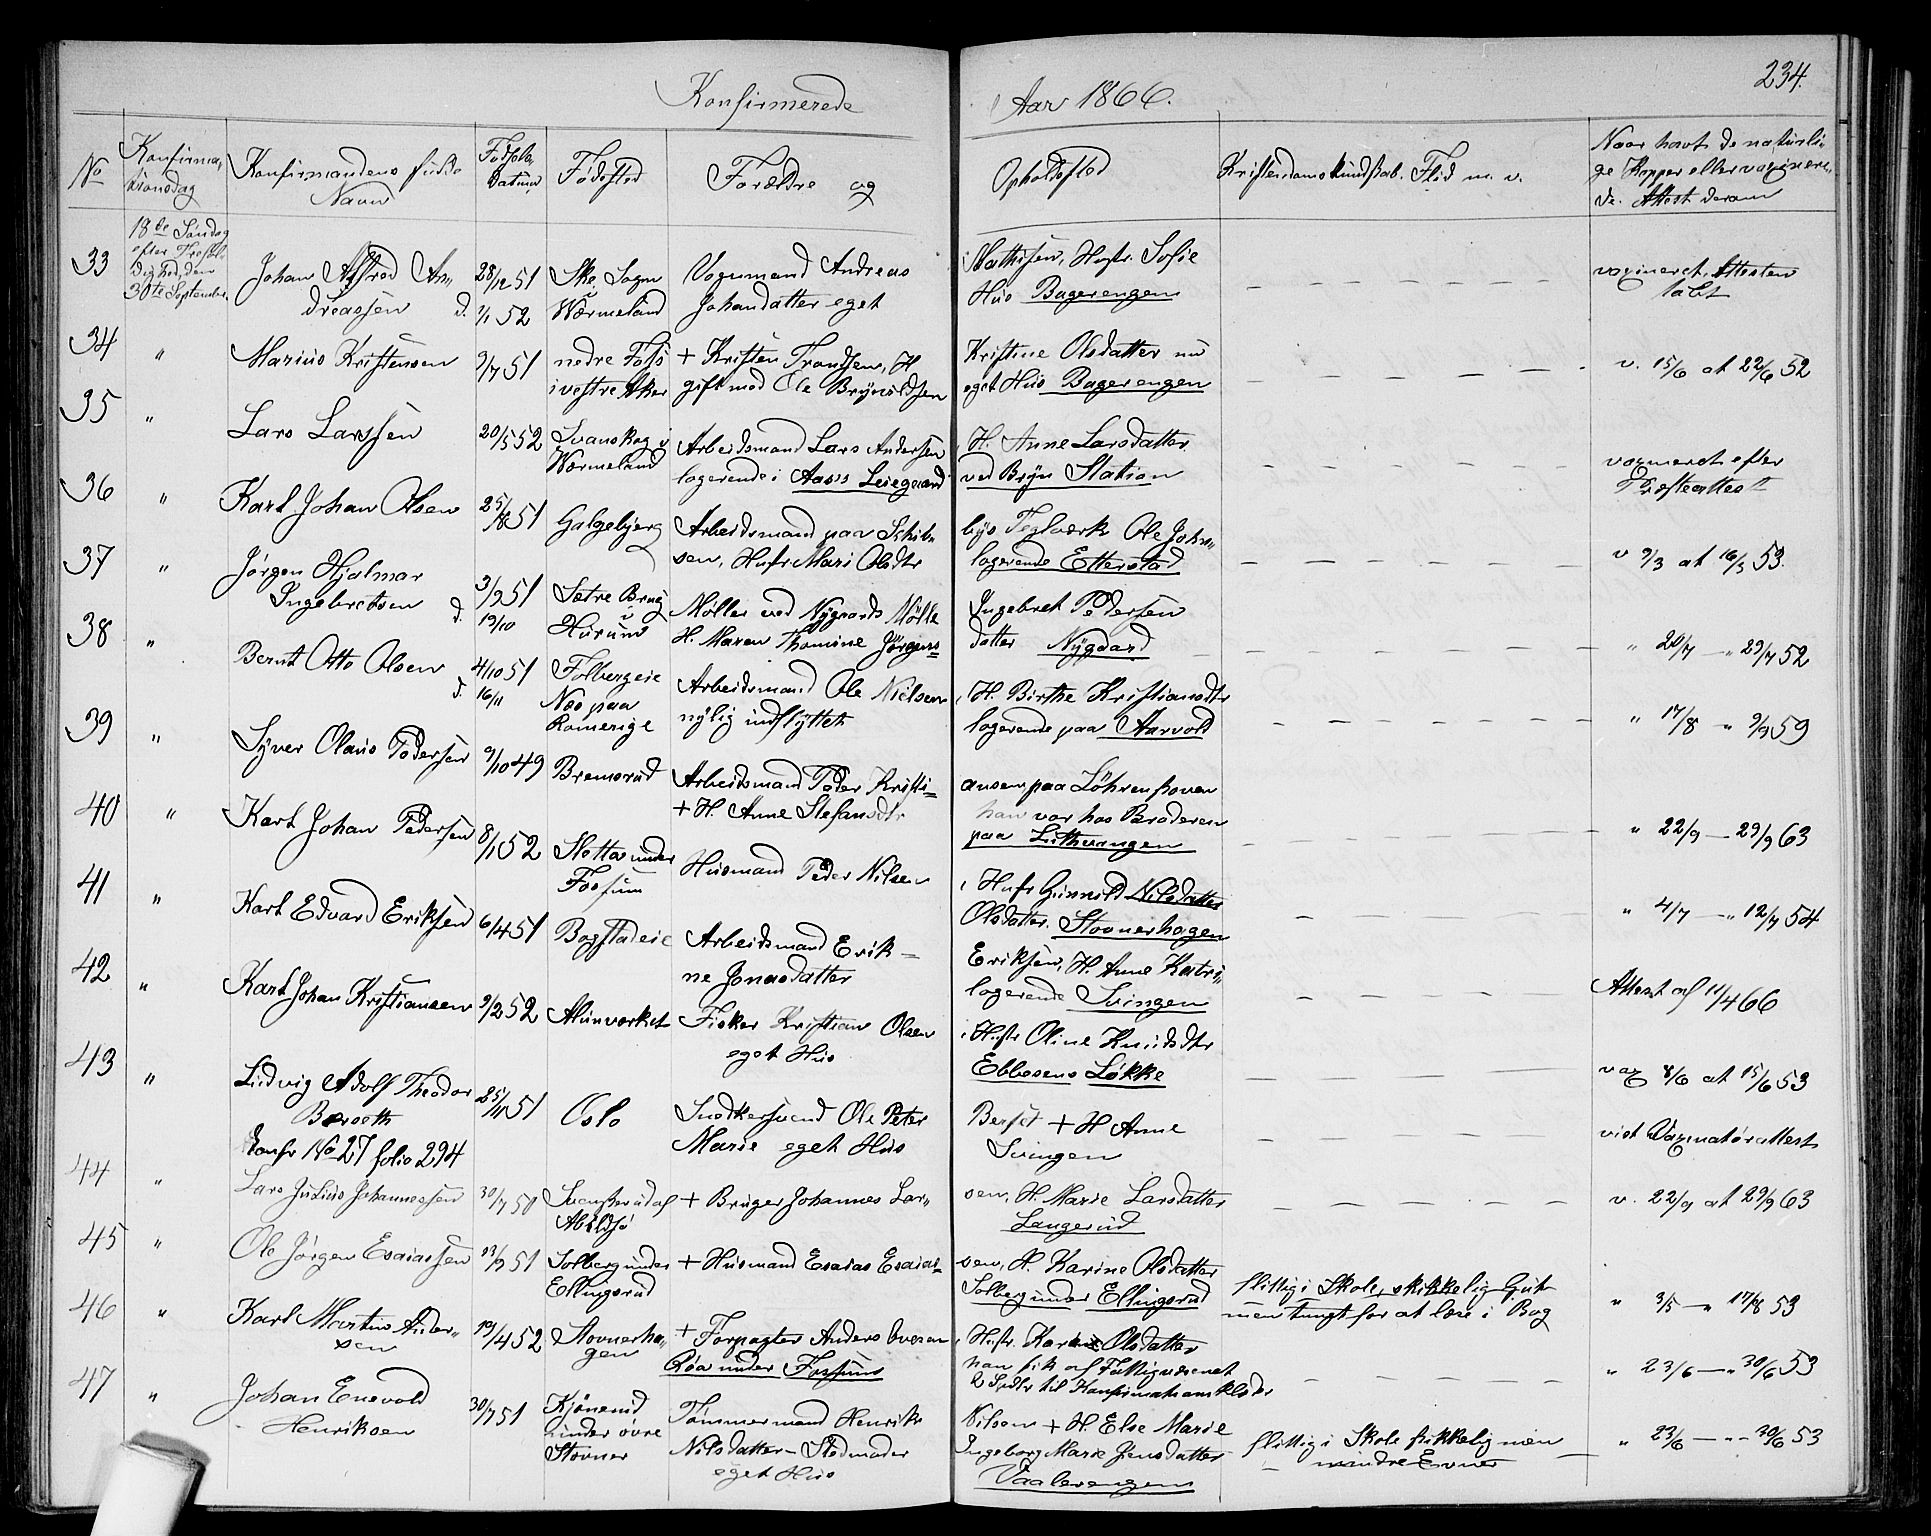 Konfirmerede
Aar 1866.
234.
No
Konfirma-
tionsdag
Konfirmandens fulde
Navn
Fødsels-
datum
Fødested
Forældre og
Opholdssted
Kristendomskundskab. Flid m. v.
Naar havt de naturli-
ge Kopper eller vaxinere-
de. Attest derom
33
18de Søndag
efter Trefol-
dighed, den
30te September
Johan Alfred An-
dreassen d.
28/12 51
2/1 52
Ske Sogn
i
Wærmeland
Vognmand Andreas
Johansdatter eget
Mathisen, Hustr. Sofie
Hus Bagerengen
vaxineret, Attesten
tabt
34 "
Marius Kristensen
3/7 51
nedre Foss
i vestre Aker
+ Kristen Trondsen, H
gift med Ole Brynildsen
Kristine Olsdatter nu
eget Hus Bagerengen
v. 15/6 at 22/6 52
35 "
Lars Larssen
20/5 52
Svanskog i
Wærmeland
Arbeidsmand Lars Andersen
logerende i Aass Leiegaard
H. Anne Larsdatter
ved Bryn Station
vaxineret efter
Præsteattest
36 "
Karl Johan Olsen
25/8 51
Galgebjerg
Arbeidsmand paa Schib-
sen, Hufr Mari Olsdtr
bys Teglværk Ole John-
logerende Etterstad
v 9/3 at 16/3 53.
37 "
Jørgen Hjalmar
Ingebretsen d.
3/9 51
19/10
Sætre Brug
i
Hurum
Møller ved Nygaards Mølle
H. Maren Thomine Jørgens-
Ingebret Pedersen
datter Nygaard
" 20/7 - " 29/7 52
38 "
Bernt Otto Olsen
d.
4/10 51
16/11
Folbergeie
Næs paa
Romerige
Arbeidsmand Ole Nielsen
nylig indflyttet
, H. Birthe Kristiansdtr
logerende paa Aarvold
" 17/8 " 9/9 59
39 "
Syver Olaus Pedersen
9/10 49
Bremsrud
Arbeidsmand Peder Kristi-
+ H. Anne Stefansdtr
ansen paa Løhrenskoven
han var hos Broderen
paa Lithuvangen
" 22/9 - 29/9 63
40 "
Karl Johan Pedersen
8/1 52
Slottet under
Fossum
Husmand Peder Nilsen
, Hufr Gunnild Nilsdatter
Olsdatter. Stovnerhagen
" 4/7 - " 12/7 54
41 "
Karl Edvard Eriksen
6/4 51
Bogstadeie
Arbeidsmand Erik -
ne Jonasdatter
Eriksen, H. Anne Katri-
logerende Svingen
Attest af 11/4 66
42 "
Karl Johan Kristiansen
9/2 52
Alunværket
Fisker Kristian Olsen
eget Hus
, Hustr Oline Knudsdtr
Ebbesens Løkke
vax 8/6 at 15/6 53
43 "
Ludvig Adolf Theodor
Berseth
Konfr No 27 folio 294
25/11 51
Oslo
Snedkersvend Ole Peter
Marie eget Hus
Berset + H Anne
Svingen
vist Vaxinatørattest
44 "
Lars Julius Johannessen
30/7 50
Svenskerud af
Abildsø
+ Bruger Johannes Lar-
sen, H. Marie Larsdatter
Langerud
v. 22/9 at 29/9 63
45 "
Ole Jørgen Esaiassen
13/9 51
Solberg under
Ellingsrud
+ Husmand Esaias Esaias-
sen, H. Karine Olsdatter
Solberg under Ellingsrud
flittig i Skole, skikkelig Gut
men tungt for at lære i Bog
" 3/5 - " 17/8 53
46 "
Karl Martin Ander-
sen
19/4 52
Stovnerha-
gen
+ Forpagter Anders Iversen
Røa under Fossum
, Hustr. Karine Olsdatter
han fik af Fattigvæsenet
2 Spdlr til Konfirmationsklæder
" 23/6 - " 30/6 53
47 "
Johan Enevold
Henriksen
30/7 51
Kjønerud
under øvre
Stovner
Tømmermand Henrik
Nilsdatter - Stedmoder
eget Hus
Nilsen + H. Else Marie
Ingeborg Marie Jensdatter
Vaalerengen
flittig i Skole skikkelig men
mindre Evner
" 23/6 - " - 30/6 53